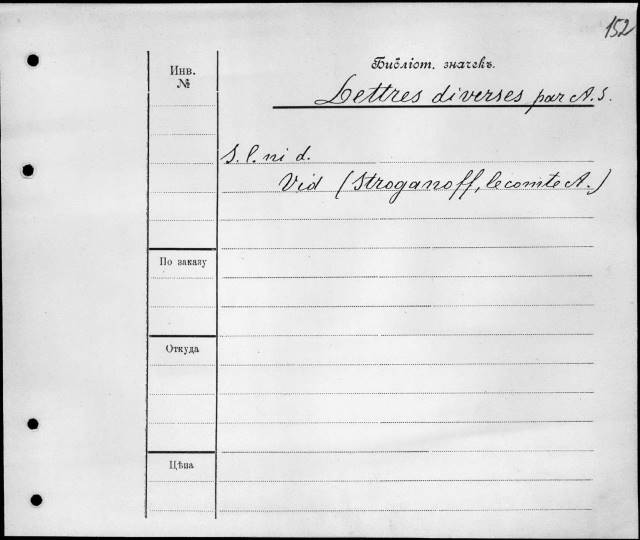 152
Библіот. значекъ.
Lettres diverses par A. S.
Инв.
№
S. l. ni d.
Vid (Stroganoff, le comte A.)
По заказу
Откуда
Цѣна